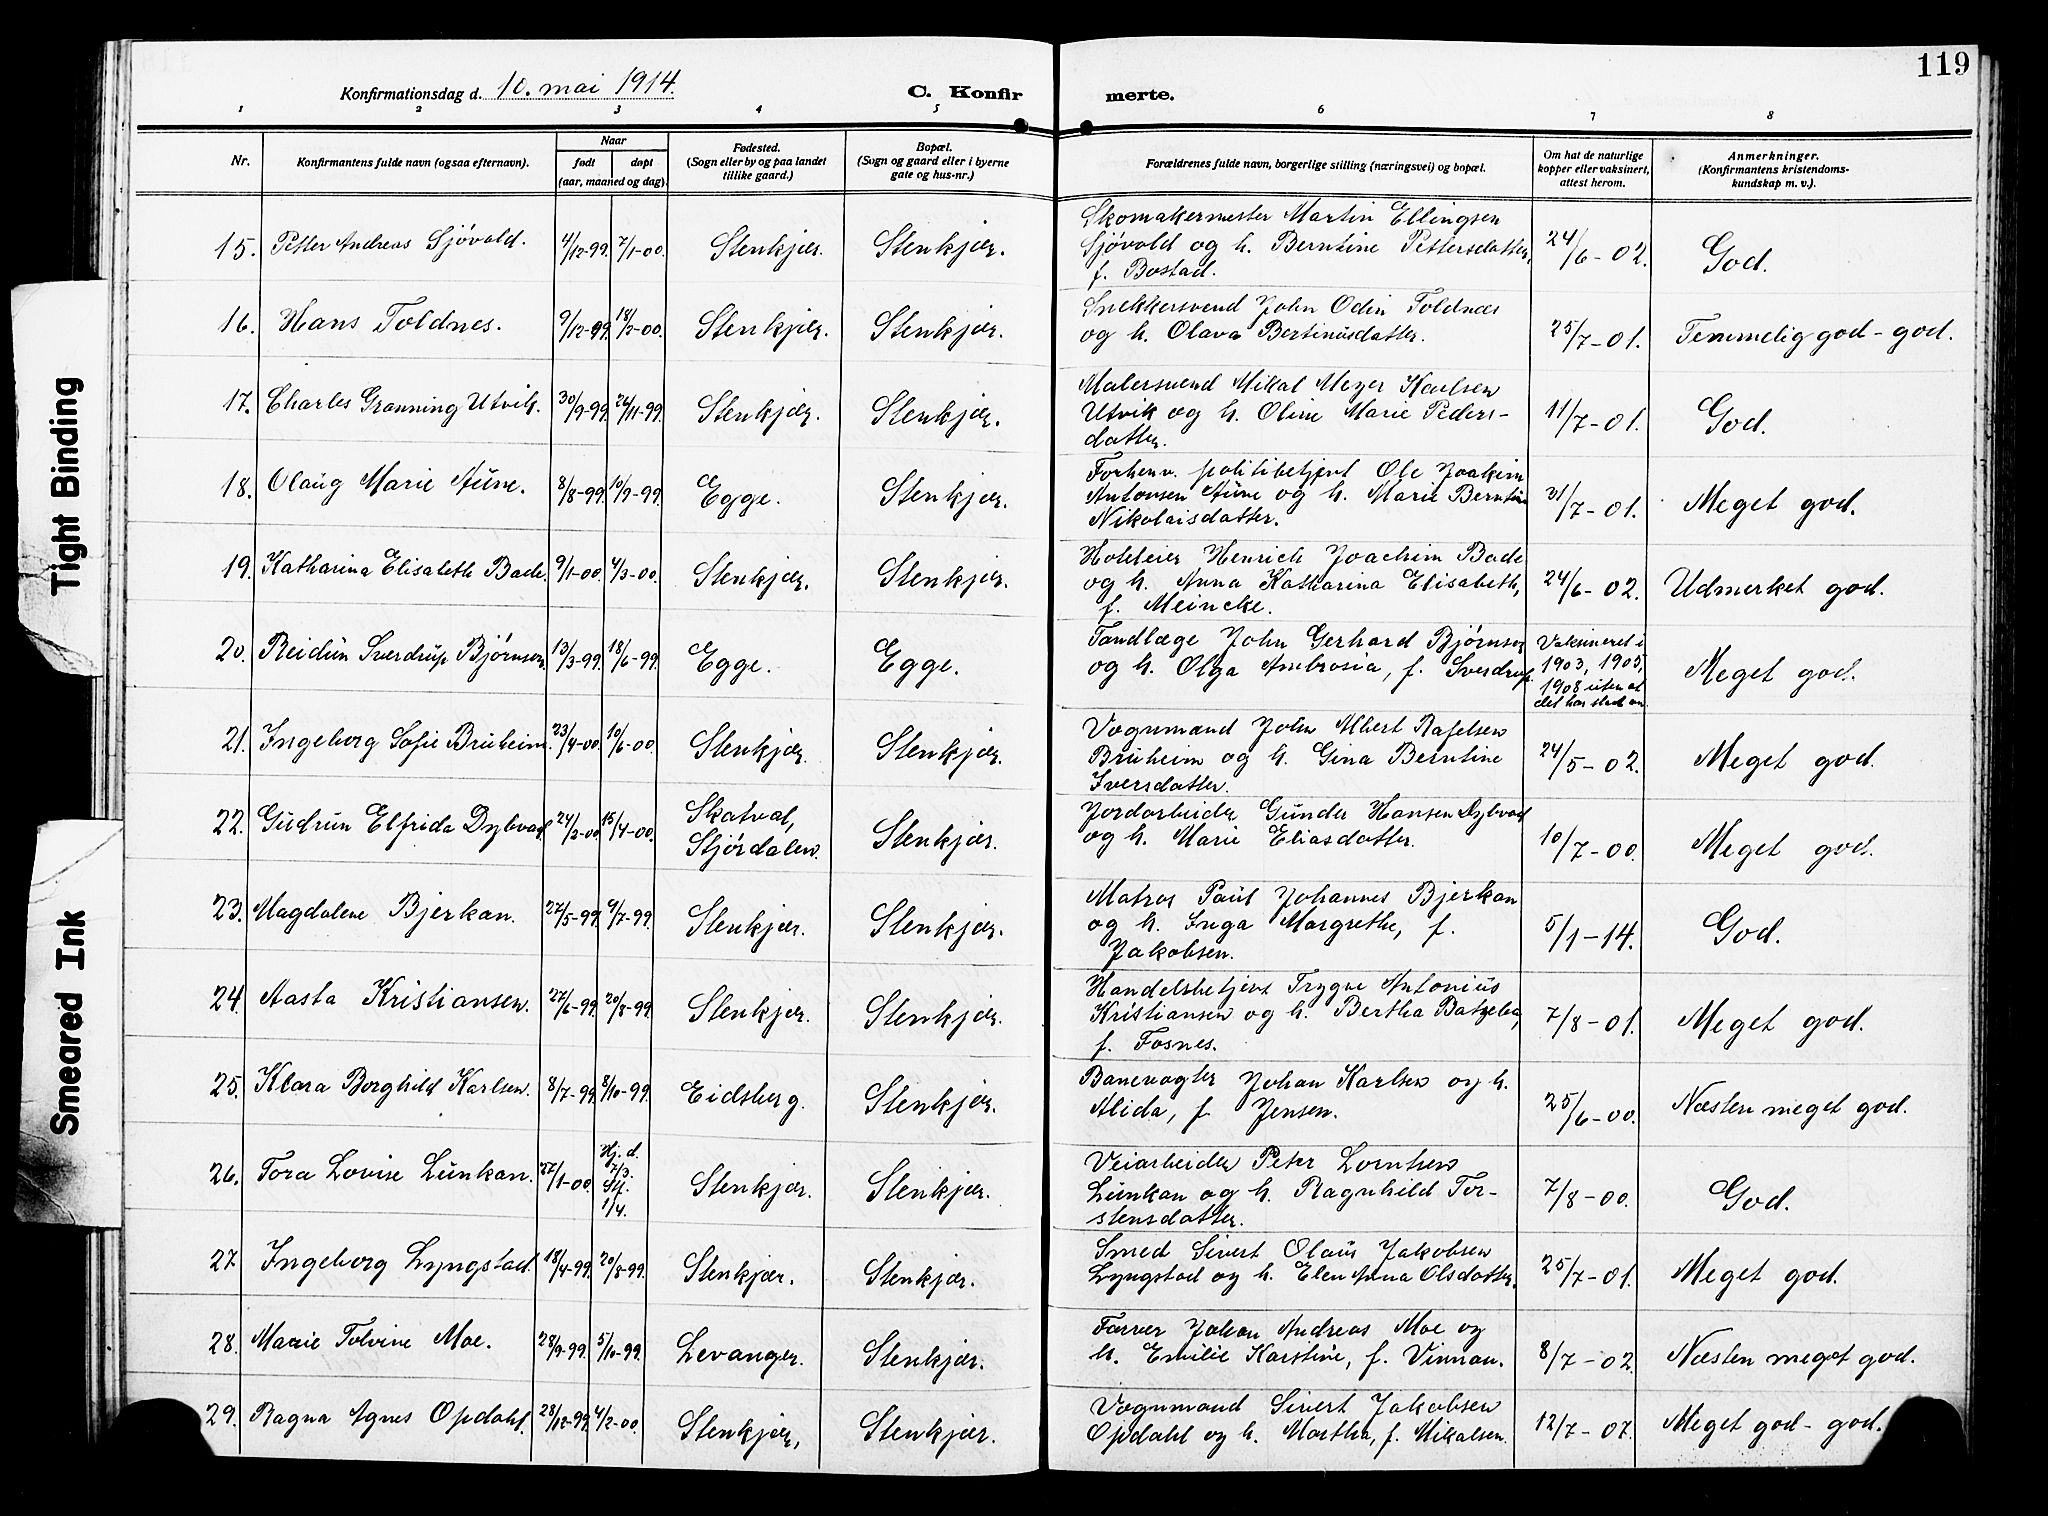 119
Konfirmationsdag d. 10. mai 1914.
C. Konfirmerte.
1 2 3 4 5 6 7 8
Nr.
Konfirmantens fulde navn (ogsaa efternavn).
Naar
født døpt
(aar, maaned og dag).
Fødested.
(Sogn eller by og paa landet
tillike gaard.)
Bopæl.
(Sogn og gaard eller i byerne
gate og hus-nr.)
Forældrenes fulde navn, borgerlige stilling (næringsvei) og bopæl.
Om hat de naturlige
kopper eller vaksinert,
attest herom.
Anmerkninger.
(Konfirmantens kristendoms-
kundskap m. v.).
15. Petter Andreas Sjövold. 4/12-99. 7/1-00. Stenkjær. Stenkjær.
Skomakermester Martin Ellingsen
Sjövold og h. Berntine Pettersdatter,
f. Bostad.
24/6-02. God.
16. Hans Toldnes. 9/12-99. 18/2-00. Stenkjær. Stenkjær.
Snekkersvend John Odin Toldnæs
og h. Olava Bertinusdatter.
25/7-01. Temmelig god - god.
17. Charles Grønning Utvik. 30/9-99. 26/11-99. Stenkjær. Stenkjær.
Malersvend Mikal Meyer Karlsen
Utvik og h. Oline Marie Peders-
datter.
11/7-01. God.
18. Olaug Marie Aune. 8/8-99. 10/9-99. Egge. Stenkjær.
Forhenv. politibetjent Ole Joakim
Antonsen Aune og h. Marie Berntine
Nikolaisdatter.
31/7-01. Meget god.
19. Katharina Elisabeth Bade. 9/1-00. 4/3-00. Stenkjær. Stenkjær.
Hoteleier Henrich Joachim Bade
og h. Anna Katharina Elisabeth,
f. Meincke.
24/6-02. Udmerket god.
20. Reidun Sverdrup Bjørnsen. 13/3-99. 18/6-99. Egge. Egge.
Tandlæge John Gerhard Bjørnsen
og h. Olga Ambrosia, f. Sverdrup.
Vaksineret i
1903, 1905,
1908 uten at
det har slaat an.
Meget god.
21. Ingeborg Sofie Bruheim. 23/4-00. 10/6-00. Stenkjær. Stenkjær.
Vognmand John Albert Rafelsen
Bruheim og h. Gina Berntine
Iversdatter.
24/5-02. Meget god.
22. Gudrun Elfrida Dybvad. 24/2-00. 15/4-00. Skatval,
Stjördalen. Stenkjær.
Jordarbeider Gunder Hansen Dybvad
og h. Marie Eliasdatter.
10/7-00. Meget god.
23. Magdalene Bjerkan. 27/5-99. 9/7-99. Stenkjær. Stenkjær.
Matros Paul Johannes Bjerkan
og h. Inga Margrethe, f.
Jakobsen.
5/1-14. God.
24. Aasta Kristiansen. 27/6-99. 20/8-99. Stenkjær. Stenkjær.
Handelsbetjent Trygve Antonius
Kristiansen og h. Bertha Batzeba,
f. Fosnes.
7/8-01. Meget god.
25. Klara Borghild Karlsen. 8/7-99. 8/10-99. Eidsberg. Stenkjær.
Banevogter Johan Karlsen og h.
Alida, f. Jensen.
25/6-00. Næsten meget god.
26. Tora Lovise Lunkan. 27/1-00. Hj. d.
17/3.
St.
1/4. Stenkjær. Stenkjær.
Veiarbeider Peter Lorntsen
Lunkan og h. Ragnhild Tor-
stensdatter.
7/8-00. God.
27. Ingeborg Lyngstad. 18/4-99. 20/8-99. Stenkjær. Stenkjær.
Smed Sivert Olaus Jakobsen
Lyngstad og h. Elen Anna Olsdatter.
25/7-01. Meget god.
28. Marie Tolvine Moe. 28/9-99. 5/10-99. Levanger. Stenkjær.
Farver Johan Andreas Moe og
h. Emilie Karstine, f. Vinnan.
8/7-02 Næsten meget god.
29. Ragna Agnes Opdahl. 28/12-99. 4/2-00. Stenkjær, Stenkjær.
Vognmand Sivert Jakobsen
Opdahl og h. Martha, f. Mikalsen.
12/7-07. Meget god - god.
Tight Binding
Smeared Ink